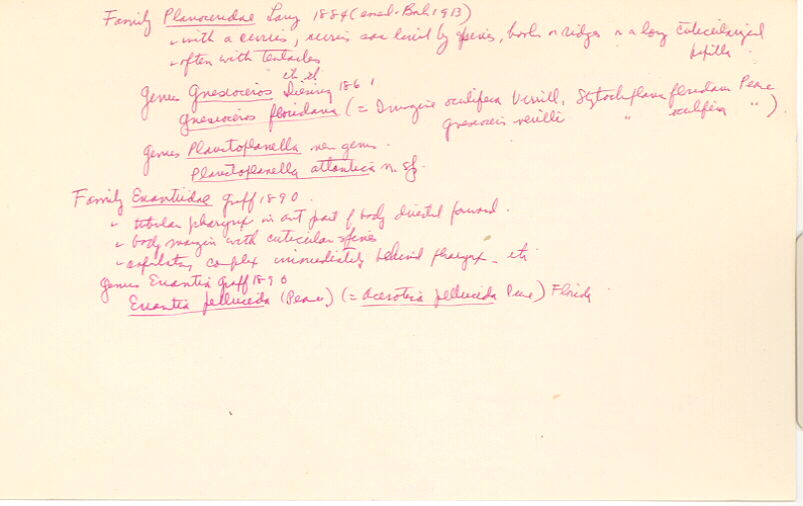 Family Planoceridae Lang 1884 (emend. Bock 1913)
- with a cirrus, cirrus sac lined by spines, hooks or ridges or a long cuticularized papilla
- often with tentacles
Genus Gnesioceros Diesing 1861
Gnesioceros floridana (= Imogine oculifera Verrill, Stylochoplana floridana Pearse
gnesioceros verrilli " oculifera " ).
Genus Planctoplanella new genus.
Planctoplanella atlantica n. sp.
Family Enantiidae Graff 1890.
- tubular pharynx in ant part of body directed forward.
- body margin with cuticular spines
- copulatory complex immediately behind pharynx - etc
Genus Enantia Graff 1890
Enantia pellucida (Pearse) (= Acerotisa pellucida Pearse) Florida